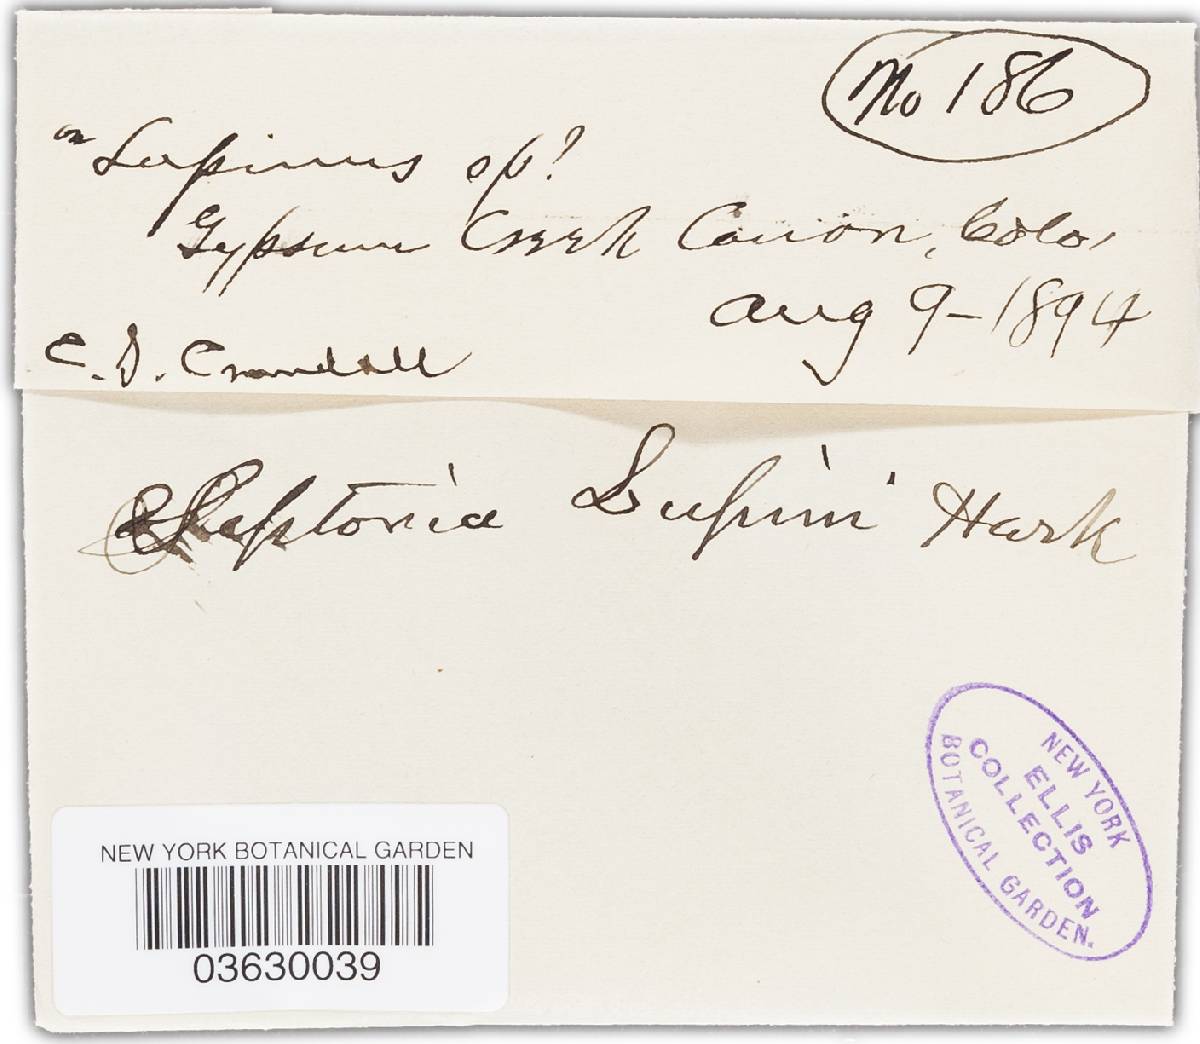 No 186
on Lupinus sp?
Gypsum Creek Canon, Colo.
Aug 9-1894
C. S. Crandall
Septoria Lupini Hark
NEW YORK
ELLIS
COLLECTION
BOTANICAL GARDEN.
NEW YORK BOTANICAL GARDEN
03630039